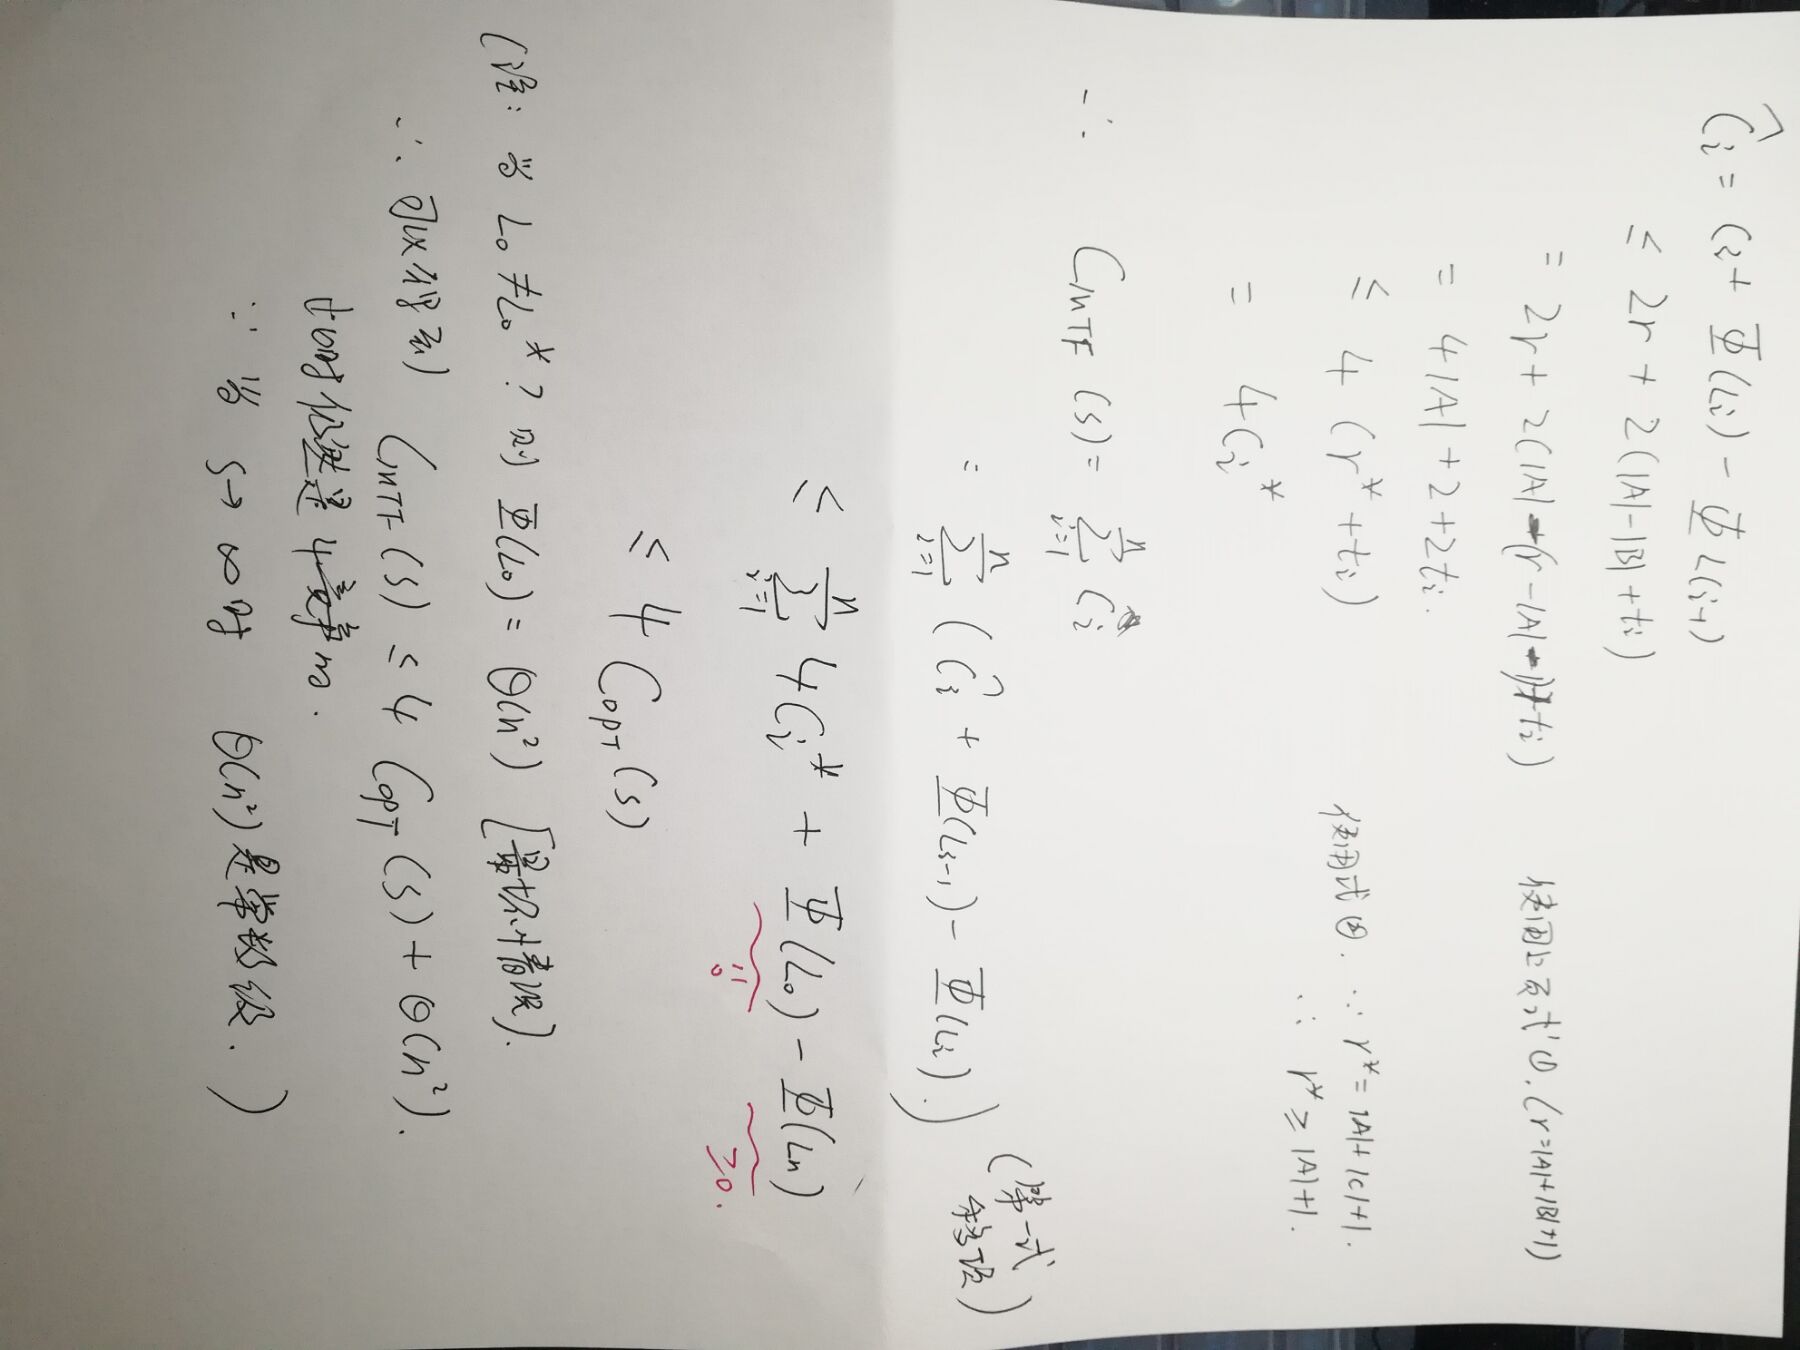 Ĉi = Ci + Φ(Li) - Φ L(i-1)
≤ 2r + 2(|A|-|B|+ti)
= 2r + 2(|A| - (r-|A|-1)+ti) 使用上页式①.(r=|A|+|B|+1)
= 4|A| + 2 + 2ti.
≤ 4 (r* + ti) 使用式②. ∵ r* = |A|+|C|+1.
∴ r* ≥ |A|+1.
= 4Ci*
∴ CMTF (S) = ∑ⁿi=1 Ci
= ∑ⁿi=1 ( Ĉi + Φ(Li-1) - Φ(Li) ) (第一式移项)
≤ ∑ⁿi=1 4Ci* + Φ(L0) - Φ(Ln)
= 0 ≥0.
≤ 4 COPT (S)
(注: 当 L0 ≠ L0* ? 则 Φ(L0) = Θ(n²) [最坏情况].
∴ 可以得到 CMTF (S) ≤ 4 COPT (S) + Θ(n²).
此时仍然是4竞争的.
∵ 当 S→∞时 Θ(n²)是常数级.)